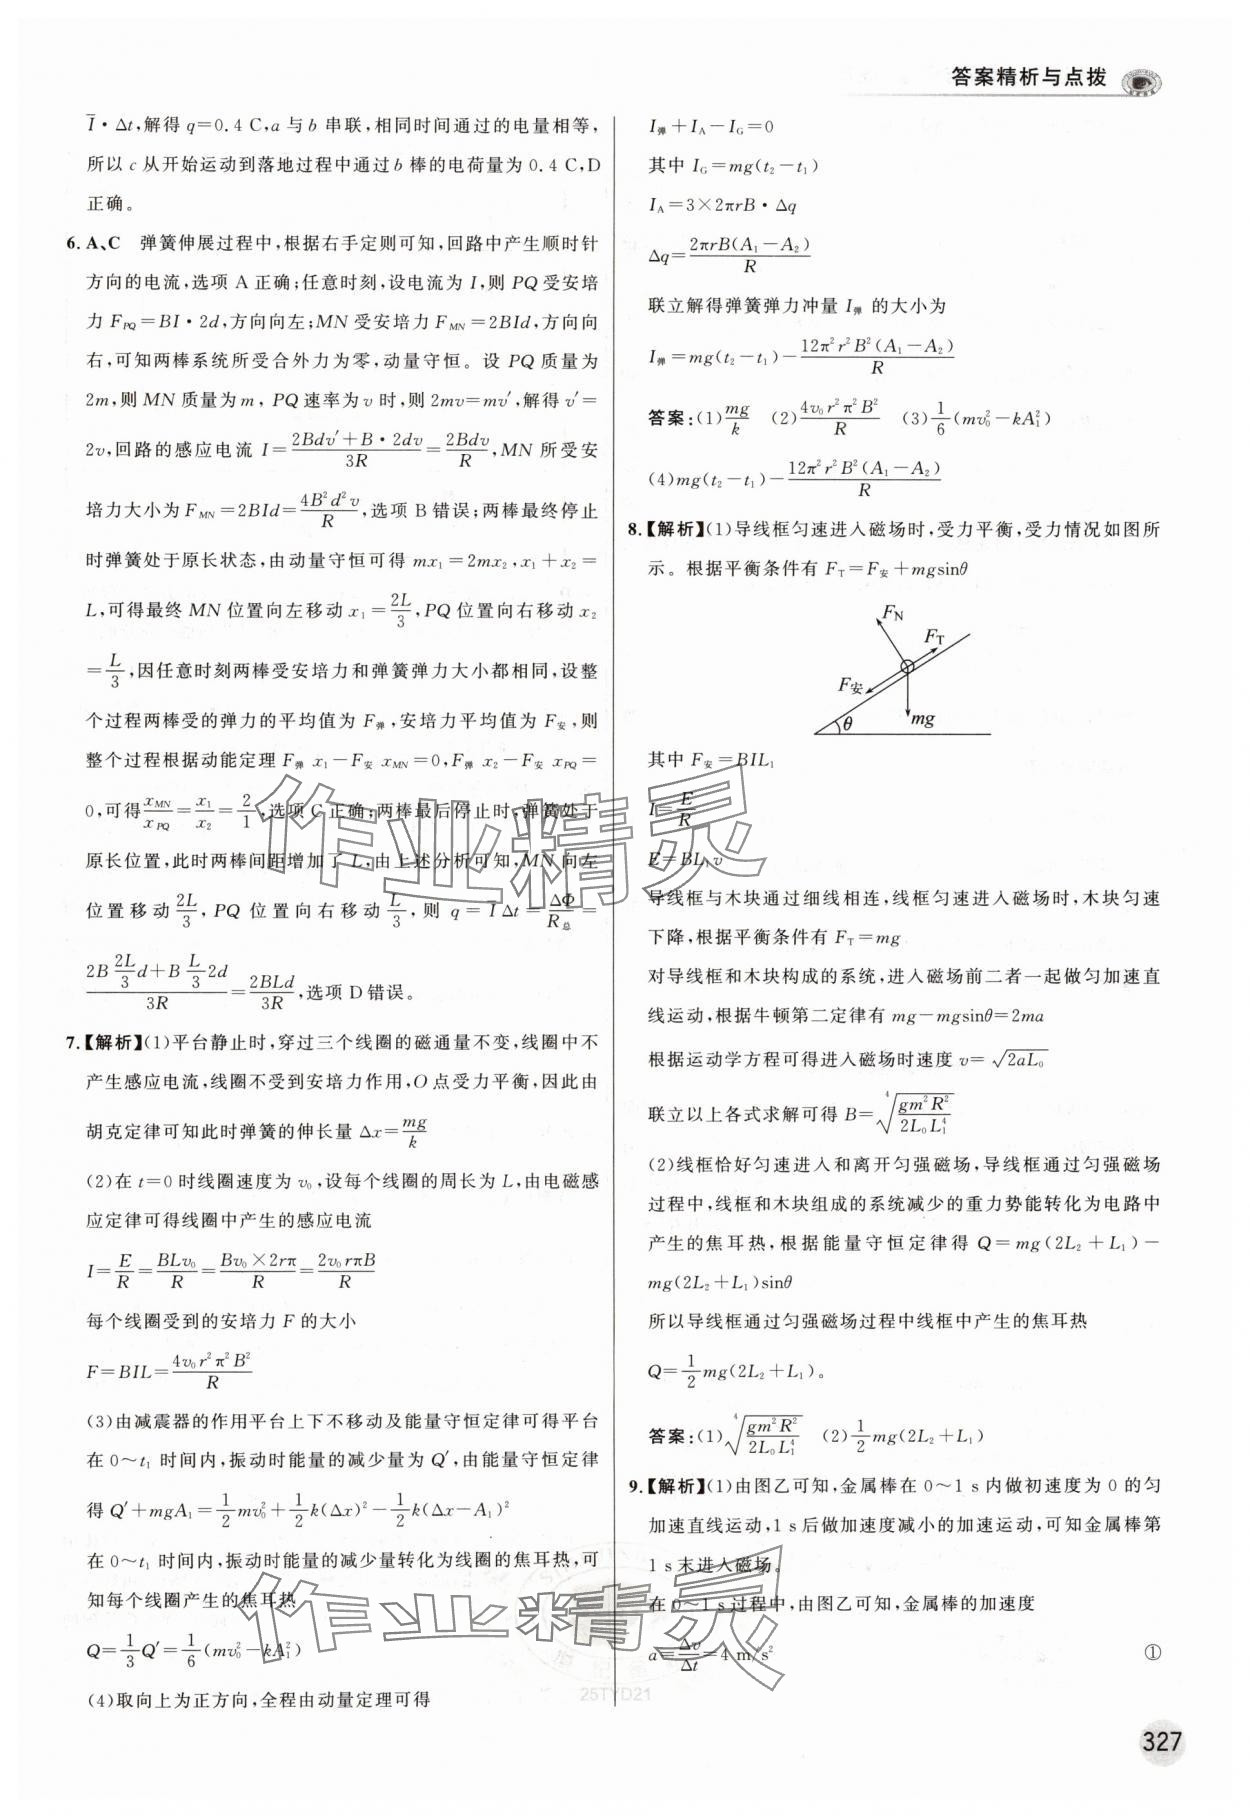 答案精析与点拨
I̅·Δt,解得 q=0.4 C,a 与 b 串联,相同时间通过的电量相等,
所以 c 从开始运动到落地过程中通过 b 棒的电荷量为 0.4 C,D
正确。
6. A、C 弹簧伸展过程中,根据右手定则可知,回路中产生顺时针
方向的电流,选项 A 正确;任意时刻,设电流为 I,则 PQ 受安培
力 F_PQ=BI·2d,方向向左;MN 受安培力 F_MN=2BId,方向向
右,可知两棒系统所受合外力为零,动量守恒。设 PQ 质量为
2m,则 MN 质量为 m,PQ 速率为 v 时,则 2mv=mv′,解得 v′=
2v,回路的感应电流 I=(2Bdv′+B·2dv)/3R=2Bdv/R,MN 所受安
培力大小为 F_MN=2BId=4B²d²v/R,选项 B 错误;两棒最终停止
时弹簧处于原长状态,由动量守恒可得 mx₁=2mx₂,x₁+x₂=
L,可得最终 MN 位置向左移动 x₁=2L/3,PQ 位置向右移动 x₂
=L/3,因任意时刻两棒受安培力和弹簧弹力大小都相同,设整
个过程两棒受的弹力的平均值为 F弹,安培力平均值为 F安,则
整个过程根据动能定理 F弹 x₁-F安 x_MN=0,F弹 x₂-F安 x_PQ=
0,可得 x_MN/x_PQ=x₁/x₂=2/1,选项 C 正确;两棒最后停止时,弹簧处于
原长位置,此时两棒间距增加了 L,由上述分析可知,MN 向左
位置移动 2L/3,PQ 位置向右移动 L/3,则 q=I̅Δt=ΔΦ/R总=
(2B 2L/3 d+B L/3 2d)/3R=2BLd/3R,选项 D 错误。
7.【解析】(1)平台静止时,穿过三个线圈的磁通量不变,线圈中不
产生感应电流,线圈不受到安培力作用,O 点受力平衡,因此由
胡克定律可知此时弹簧的伸长量 Δx=mg/k
(2)在 t=0 时线圈速度为 v₀,设每个线圈的周长为 L,由电磁感
应定律可得线圈中产生的感应电流
I=E/R=BLv₀/R=Bv₀×2rπ/R=2v₀rπB/R
每个线圈受到的安培力 F 的大小
F=BIL=4v₀r²π²B²/R
(3)由减震器的作用平台上下不移动及能量守恒定律可得平台
在 0~t₁ 时间内,振动时能量的减少量为 Q′,由能量守恒定律
得 Q′+mgA₁=1/2 mv₀²+1/2 k(Δx)²-1/2 k(Δx-A₁)²
在 0~t₁ 时间内,振动时能量的减少量转化为线圈的焦耳热,可
知每个线圈产生的焦耳热
Q=1/3 Q′=1/6 (mv₀²-kA₁²)
(4)取向上为正方向,全程由动量定理可得
I弹+I_A-I_G=0
其中 I_G=mg(t₂-t₁)
I_A=3×2πrB·Δq
Δq=2πrB(A₁-A₂)/R
联立解得弹簧弹力冲量 I弹 的大小为
I弹=mg(t₂-t₁)-12π²r²B²(A₁-A₂)/R
答案:(1)mg/k (2)4v₀r²π²B²/R (3)1/6(mv₀²-kA₁²)
(4)mg(t₂-t₁)-12π²r²B²(A₁-A₂)/R
8.【解析】(1)导线框匀速进入磁场时,受力平衡,受力情况如图所
示。根据平衡条件有 F_T=F安+mgsinθ
F_N
F_T
F安
mg
θ
其中 F安=BIL₁
I=E/R
E=BL₁v
导线框与木块通过细线相连,线框匀速进入磁场时,木块匀速
下降,根据平衡条件有 F_T=mg
对导线框和木块构成的系统,进入磁场前二者一起做匀加速直
线运动,根据牛顿第二定律有 mg-mgsinθ=2ma
根据运动学方程可得进入磁场时速度 v=√(2aL₀)
联立以上各式求解可得 B=⁴√(gm²R²/2L₀L₁⁴)
(2)线框恰好匀速进入和离开匀强磁场,导线框通过匀强磁场
过程中,线框和木块组成的系统减少的重力势能转化为电路中
产生的焦耳热,根据能量守恒定律得 Q=mg(2L₂+L₁)-
mg(2L₂+L₁)sinθ
所以导线框通过匀强磁场过程中线框中产生的焦耳热
Q=1/2 mg(2L₂+L₁)。
答案:(1)⁴√(gm²R²/2L₀L₁⁴) (2)1/2 mg(2L₂+L₁)
9.【解析】(1)由图乙可知,金属棒在 0~1 s 内做初速度为 0 的匀
加速直线运动,1 s 后做加速度减小的加速运动,可知金属棒第
1 s 末进入磁场。
在 0~1 s 过程中,由图乙可知,金属棒的加速度
a=Δv/Δt=4 m/s² ①
作业精灵
作业精灵
25TYD21
327